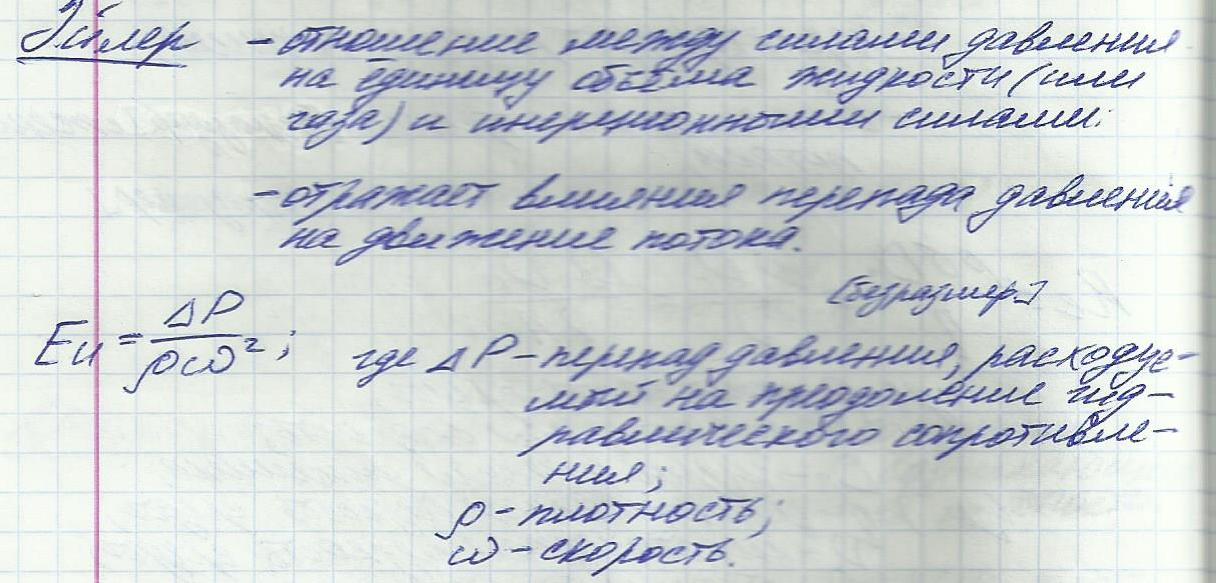 Эйлер - отношение между силами давления
на единицу объёма жидкости (или
газа) и инерционными силами.
- отражает влияния перепада давления
на движение потока.
[безразмер.]
Eu = ΔP / ρω²; где ΔP - перепад давления, расходуе-
мый на преодоление гид-
равлического сопротивле-
ния;
ρ - плотность;
ω - скорость.